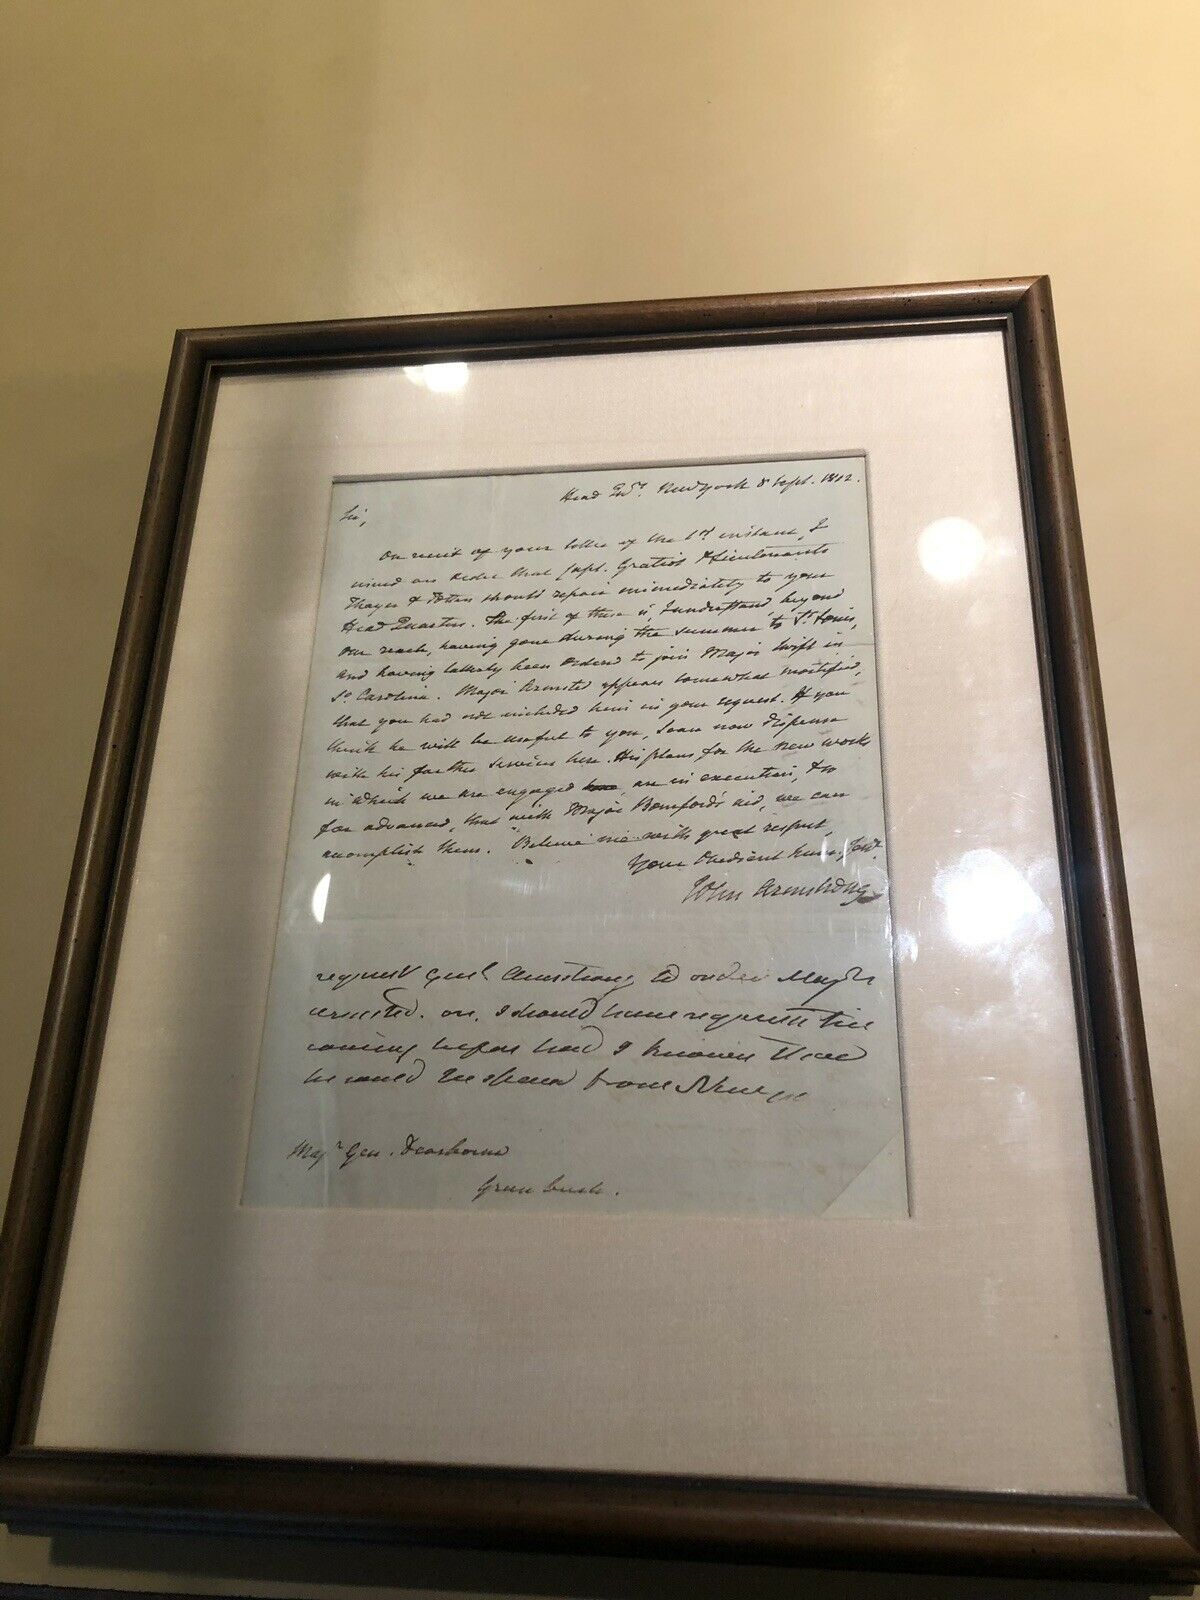 Head Qrs. New York 8 Sept. 1812.
Sir,
On receit of your letter of the 1st instant, I
issued an order that Capt. Gratiot & Lieutenants
Thayer & Totten should repair immediately to your
Head Quarters. The first of these is, I understand, beyond
our reach, having gone during the summer to St. Louis,
and having latterly been ordered to join Major Swift in
So. Carolina. Major Armsted appears somewhat mortified,
that you had not included him in your request. If you
think he will be useful to you, I can now dispense
with his farther services here. His plans for the new works
in which we are engaged are in execution, & so
far advanced, that with Major Bomford's aid, we can
accomplish them. Believe me with great respect,
Your Obedient hum. Servt.
John Armstrong
request Genl. Armstrong to order Majr
Armsted. on. I should have requested his
coming before had I known that
he could be spared from New
Majr Gen. Dearborn
Green bush.